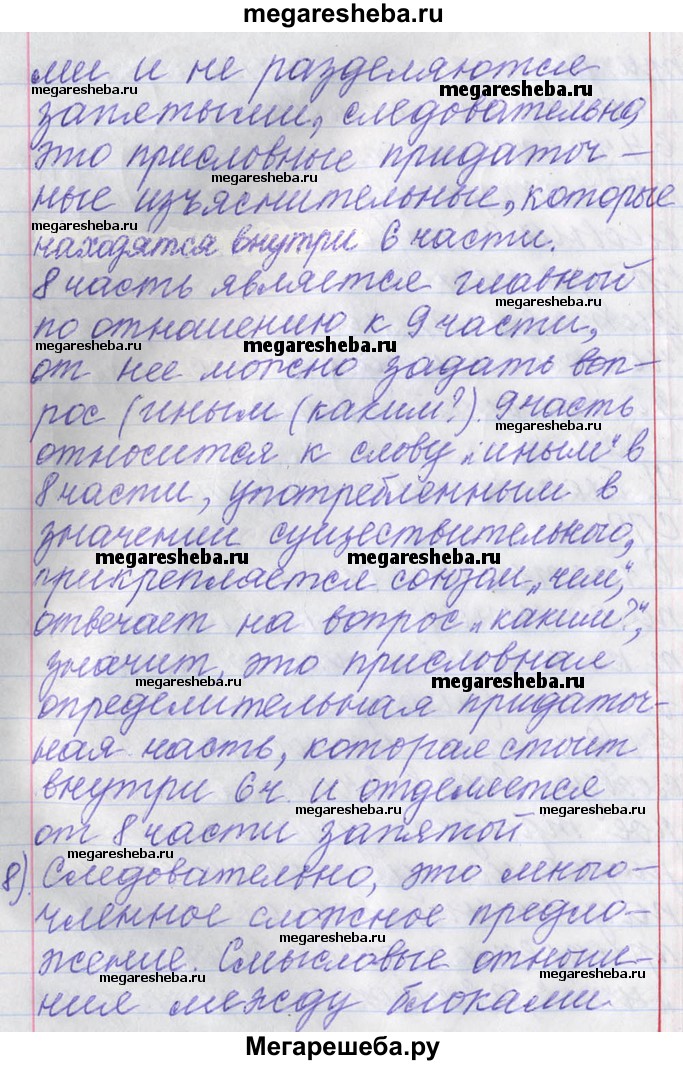 megaresheba.ru
ми и не разделяются
megaresheba.ru megaresheba.ru
запятыми, следовательно,
это присловные придаточ-
megaresheba.ru
ные изъяснительные, которые
megaresheba.ru
находятся внутри 6 части.
8 часть является главной
megaresheba.ru
по отношению к 9 части,
megaresheba.ru megaresheba.ru
от нее можно задать воп-
рос (иным (каким?). 9 часть
megaresheba.ru
относится к слову „иным“ в
8 части, употребленным в
значении существительного,
megaresheba.ru megaresheba.ru
прикрепляется союзом „чем“,
отвечает на вопрос „каким?“,
значит, это присловная
megaresheba.ru megaresheba.ru
определительная придаточ-
ная часть, которая стоит
внутри 6 ч. и отделяется
megaresheba.ru megaresheba.ru
от 8 части запятой
megaresheba.ru
8). Следовательно, это много-
членное сложное предло-
megaresheba.ru
жение. Смысловые отноше-
megaresheba.ru megaresheba.ru
ния между блоками
Мегарешеба.ру